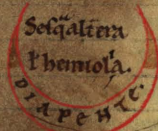 Sesqͣaltera
ł hemiola.
DIAPENTE.